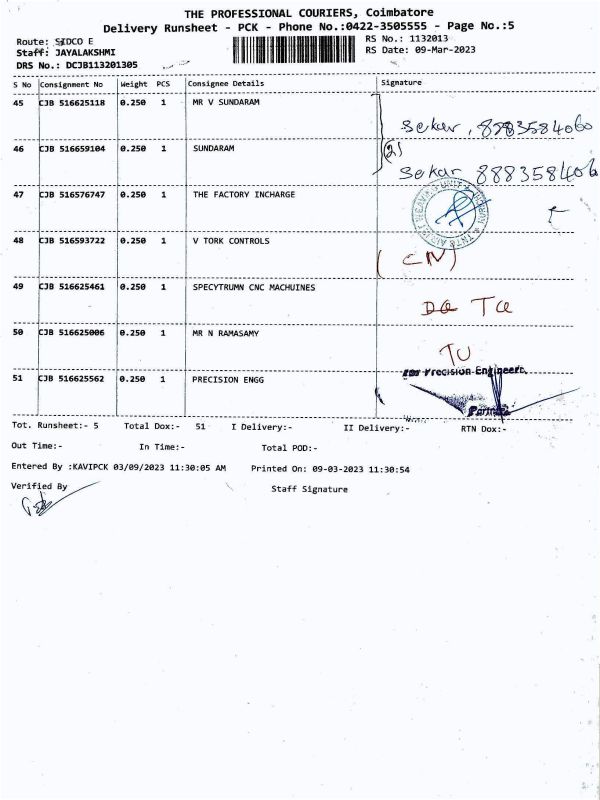 THE PROFESSIONAL COURIERS, Coimbatore
Delivery Runsheet - PCK - Phone No.:0422-3505555 - Page No.:5
Route: SIDCO E
RS No.: 1132013
Staff: JAYALAKSHMI
RS Date: 09-Mar-2023
DRS No.: DCJB113201305
S No Consignment No Weight PCS Consignee Details Signature
45 CJB 516625118 0.250 1 MR V SUNDARAM
Sekar,
46 CJB 516659104 0.250 1 SUNDARAM (2)
Sekar
47 CJB 516576747 0.250 1 THE FACTORY INCHARGE
48 CJB 516593722 0.250 1 V TORK CONTROLS
(CN)
49 CJB 516625461 0.250 1 SPECYTRUMN CNC MACHUINES
50 CJB 516625006 0.250 1 MR N RAMASAMY
Precision Engineers,
51 CJB 516625562 0.250 1 PRECISION ENGG
Tot. Runsheet:- 5 Total Dox:- 51 I Delivery:- II Delivery:- RTN Dox:-
Out Time:- In Time:- Total POD:-
Entered By :KAVIPCK 03/09/2023 11:30:05 AM Printed On: 09-03-2023 11:30:54
Verified By
Staff Signature